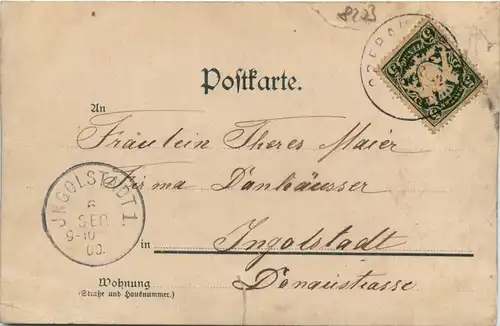 8203
Postkarte.
An
Fräulein Theres Maier
Firma Danhäusser
in Ingolstadt
Wohnung Donaustrasse
(Straße und Hausnummer.)
INGOLSTADT 1.
6
SEP.
9-10
00.
OBERAU